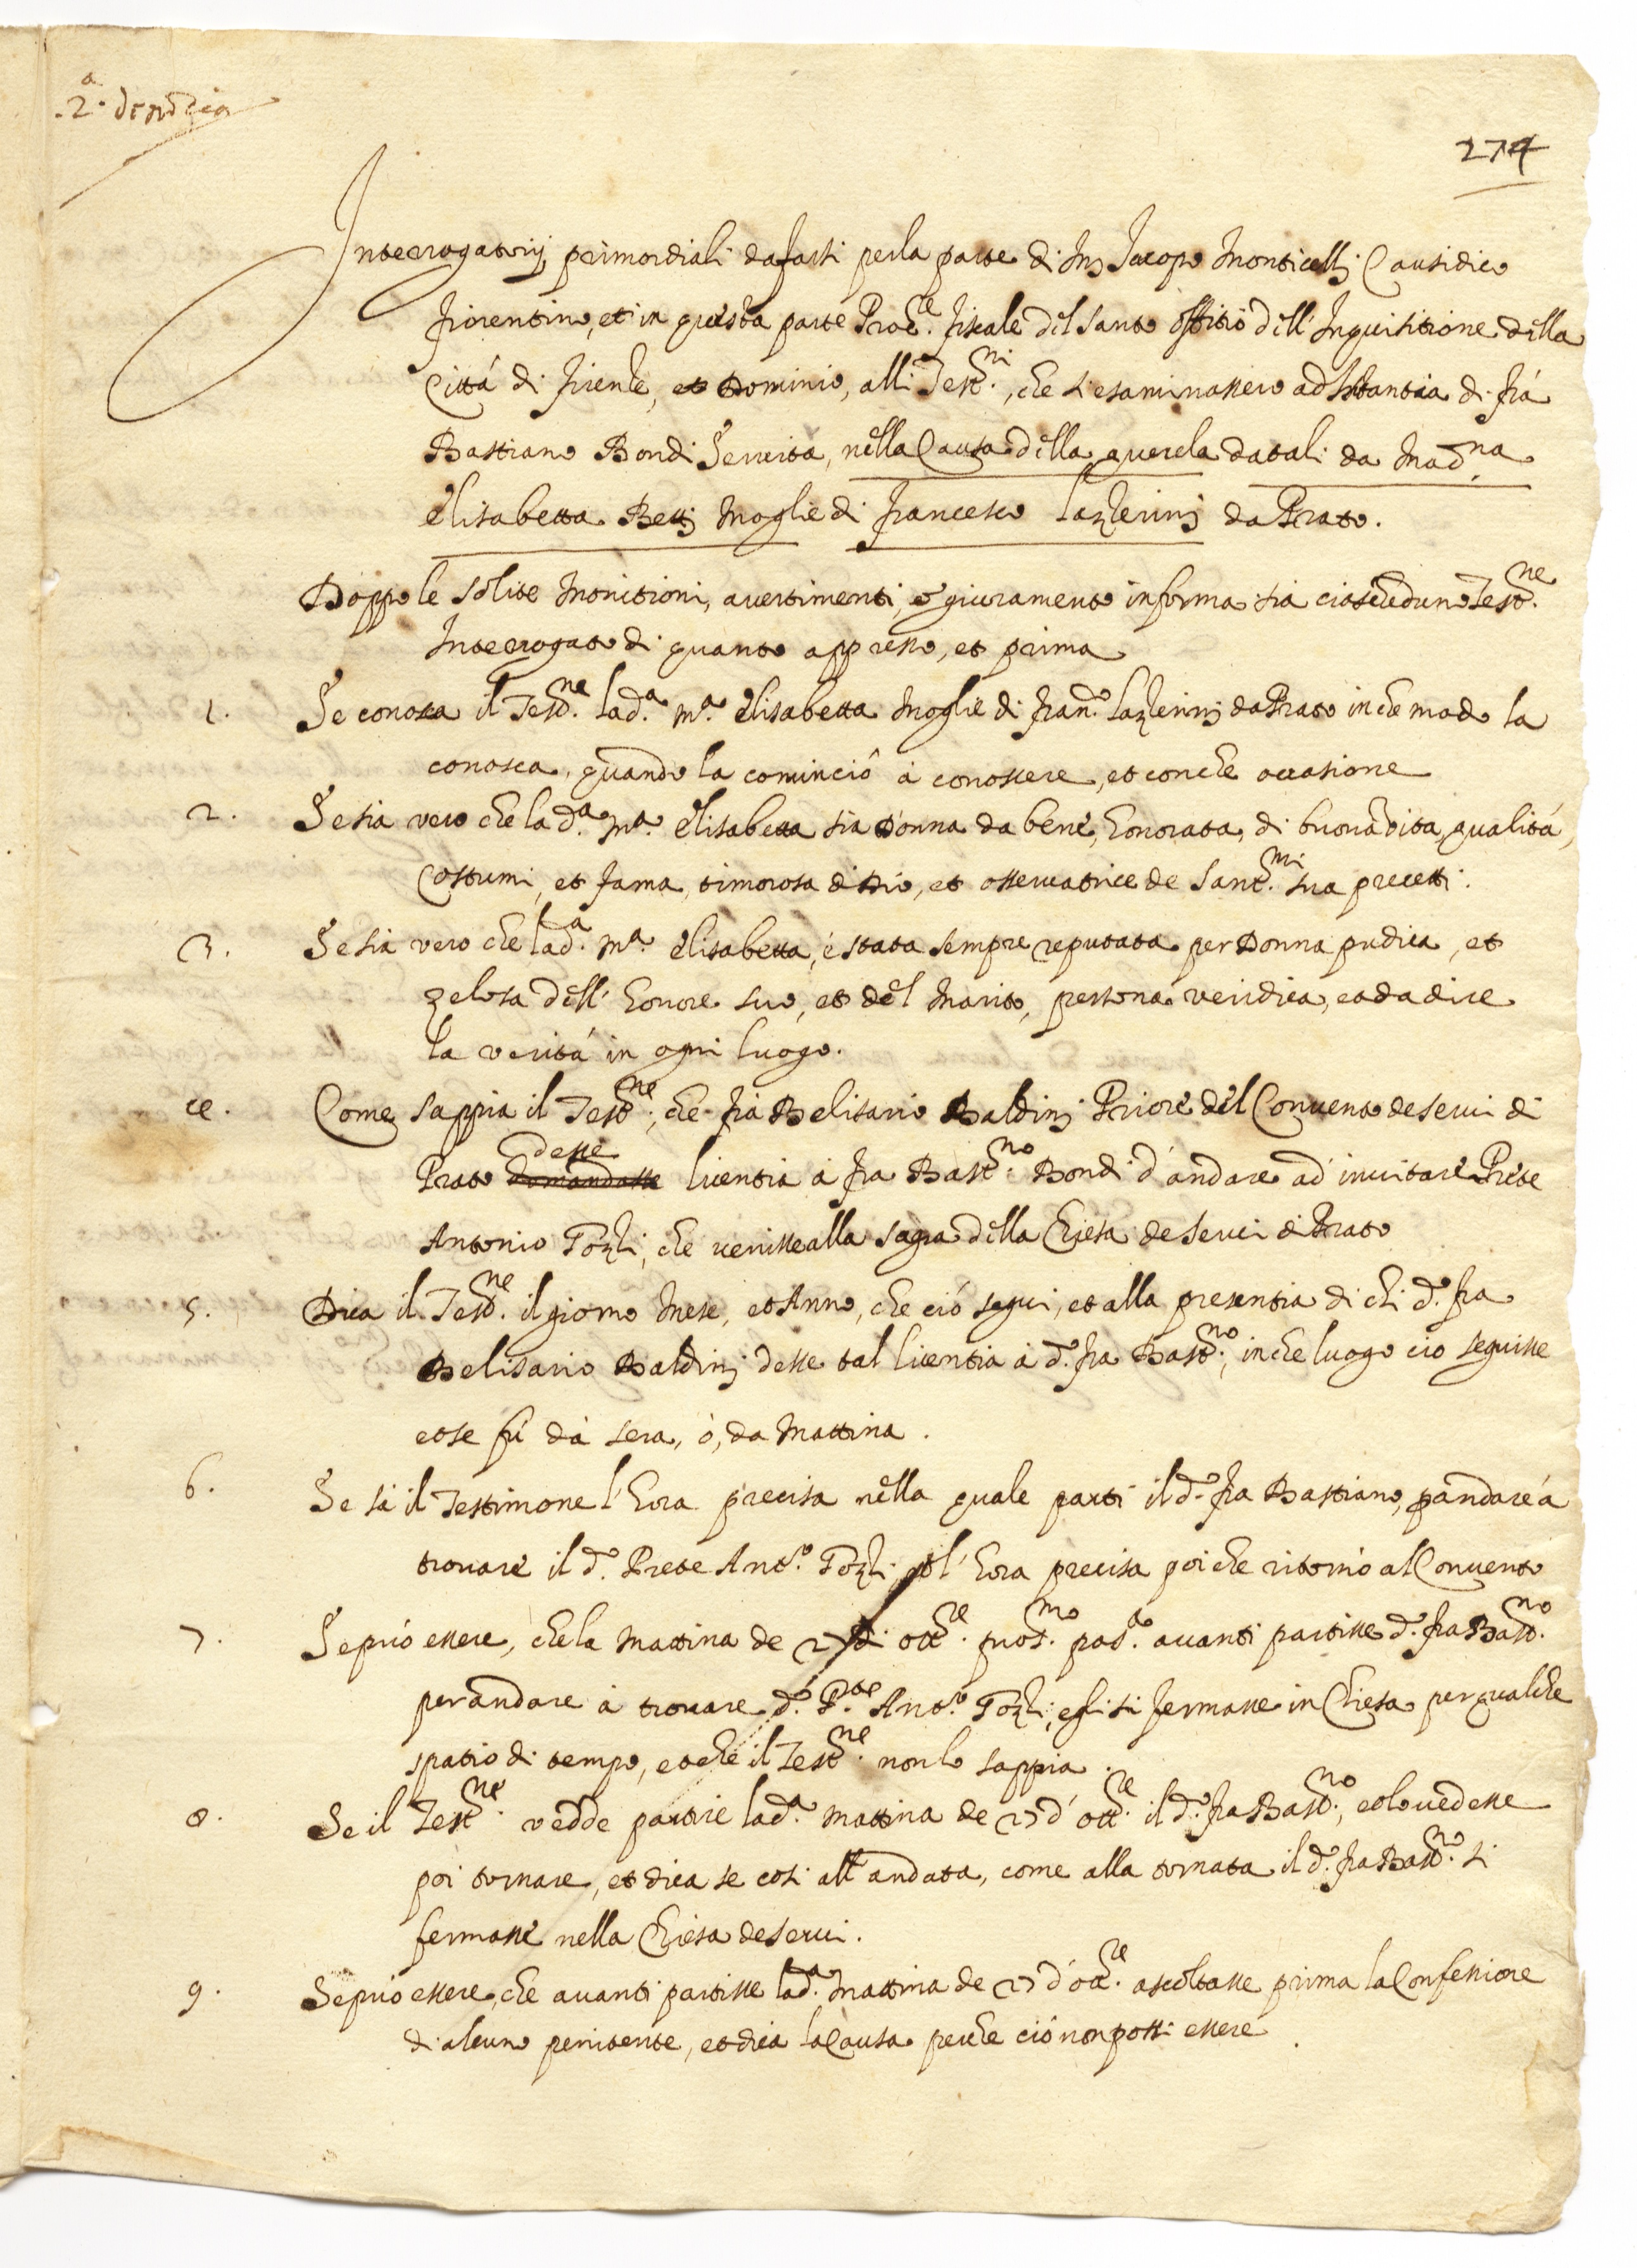 2.ª denūzia
274
Interrogatorij primordiali da farsi per la parte di Mͬ Iacopo Monticelli Causidico
fiorentino, et in questa parte Procͬͤ. fiscale del santo offitio dell' Inquisitione della
Città di firenze, et Dominio, alli Testⁿⁱ., che si esaminassero ad Istantia di frà
Bastiano Bondi Servita, nella Causa della querela datali da Madⁿᵃ
Elisabetta Betti Moglie di francesco Lazzerini da Prato.
Doppo le solite Monitioni, avertimenti, e giuramento in forma sia ciascheduno Testⁿᵉ.
Interrogato di quanto appresso, et prima
1. Se conosca il Testⁿᵉ. la dª. mª. Elisabetta Moglie di Franº. Lazzerini da Prato in che modo la
conosca, quando la cominciò à conoscere, et con che occasione
2. Se sia vero che la dª. mª. Elisabetta sia donna da bene, honorata, di buona vita, qualità,
Costumi, et fama, timorosa di Dio, et osservatrice de Santᵐⁱ. sua precetti.
3. Se sia vero che la dª. mª. Elisabetta, è stata sempre reputata per Donna pudica, et
zelosa dell' honore suo, et del Marito, persona veridica, e da dire
la verità in ogni luogo.
4. Come sappia il Testⁿᵉ., che frà Belisario Baldini Priore del Convento de servi di
desse
Prato domandasse licentia à fra Bastⁿᵒ. Bondi d'andare ad invitare Prete
Antonio Tozzi, che venisse alla sagra della Chiesa de servi di Prato
5. Dica il Testⁿᵉ. il giorno Mese, et Anno, che ciò seguì, et alla presentia di chi dº. fra
Belisario Baldini desse tal licentia à dº. fra Bastⁿᵒ., in che luogo ciò seguisse
et se fù dà sera, ò, da Mattina.
6. Se sà il Testimone l'hora precisa nella quale partì il dº. fra Bastiano, p andare à
trovare il dº. Prete Antº. Tozzi, et l'hora precisa poi che ritornò al Convento
7. Se può essere, che la Mattina de 27 di ottͬͤ. prosᵐᵒ. pasᵗᵒ. avanti partisse dº. fra Bastⁿᵒ.
per andare à trovare dº. Pᵗᵉ. Antº. Tozzi, egli si fermasse in Chiesa per qualche
spatio di tempo, et che il Testⁿᵉ. non lo sappia.
8. Se il Testⁿᵉ. vedde partire la dª. mattina de 27 d' ottͬͤ. il dº. fra Bastⁿᵒ., e lo vedesse
poi tornare, et dica se così all' andata, come alla tornata il dº. fra Bastⁿᵒ. si
fermasse nella Chiesa de servi.
9. Se può essere, che avanti partisse la dª. Mattina de 27 d' ottͬͤ. ascoltasse prima la Confessione
di alcuno penitente, et dica la Causa perche ciò non possi essere.